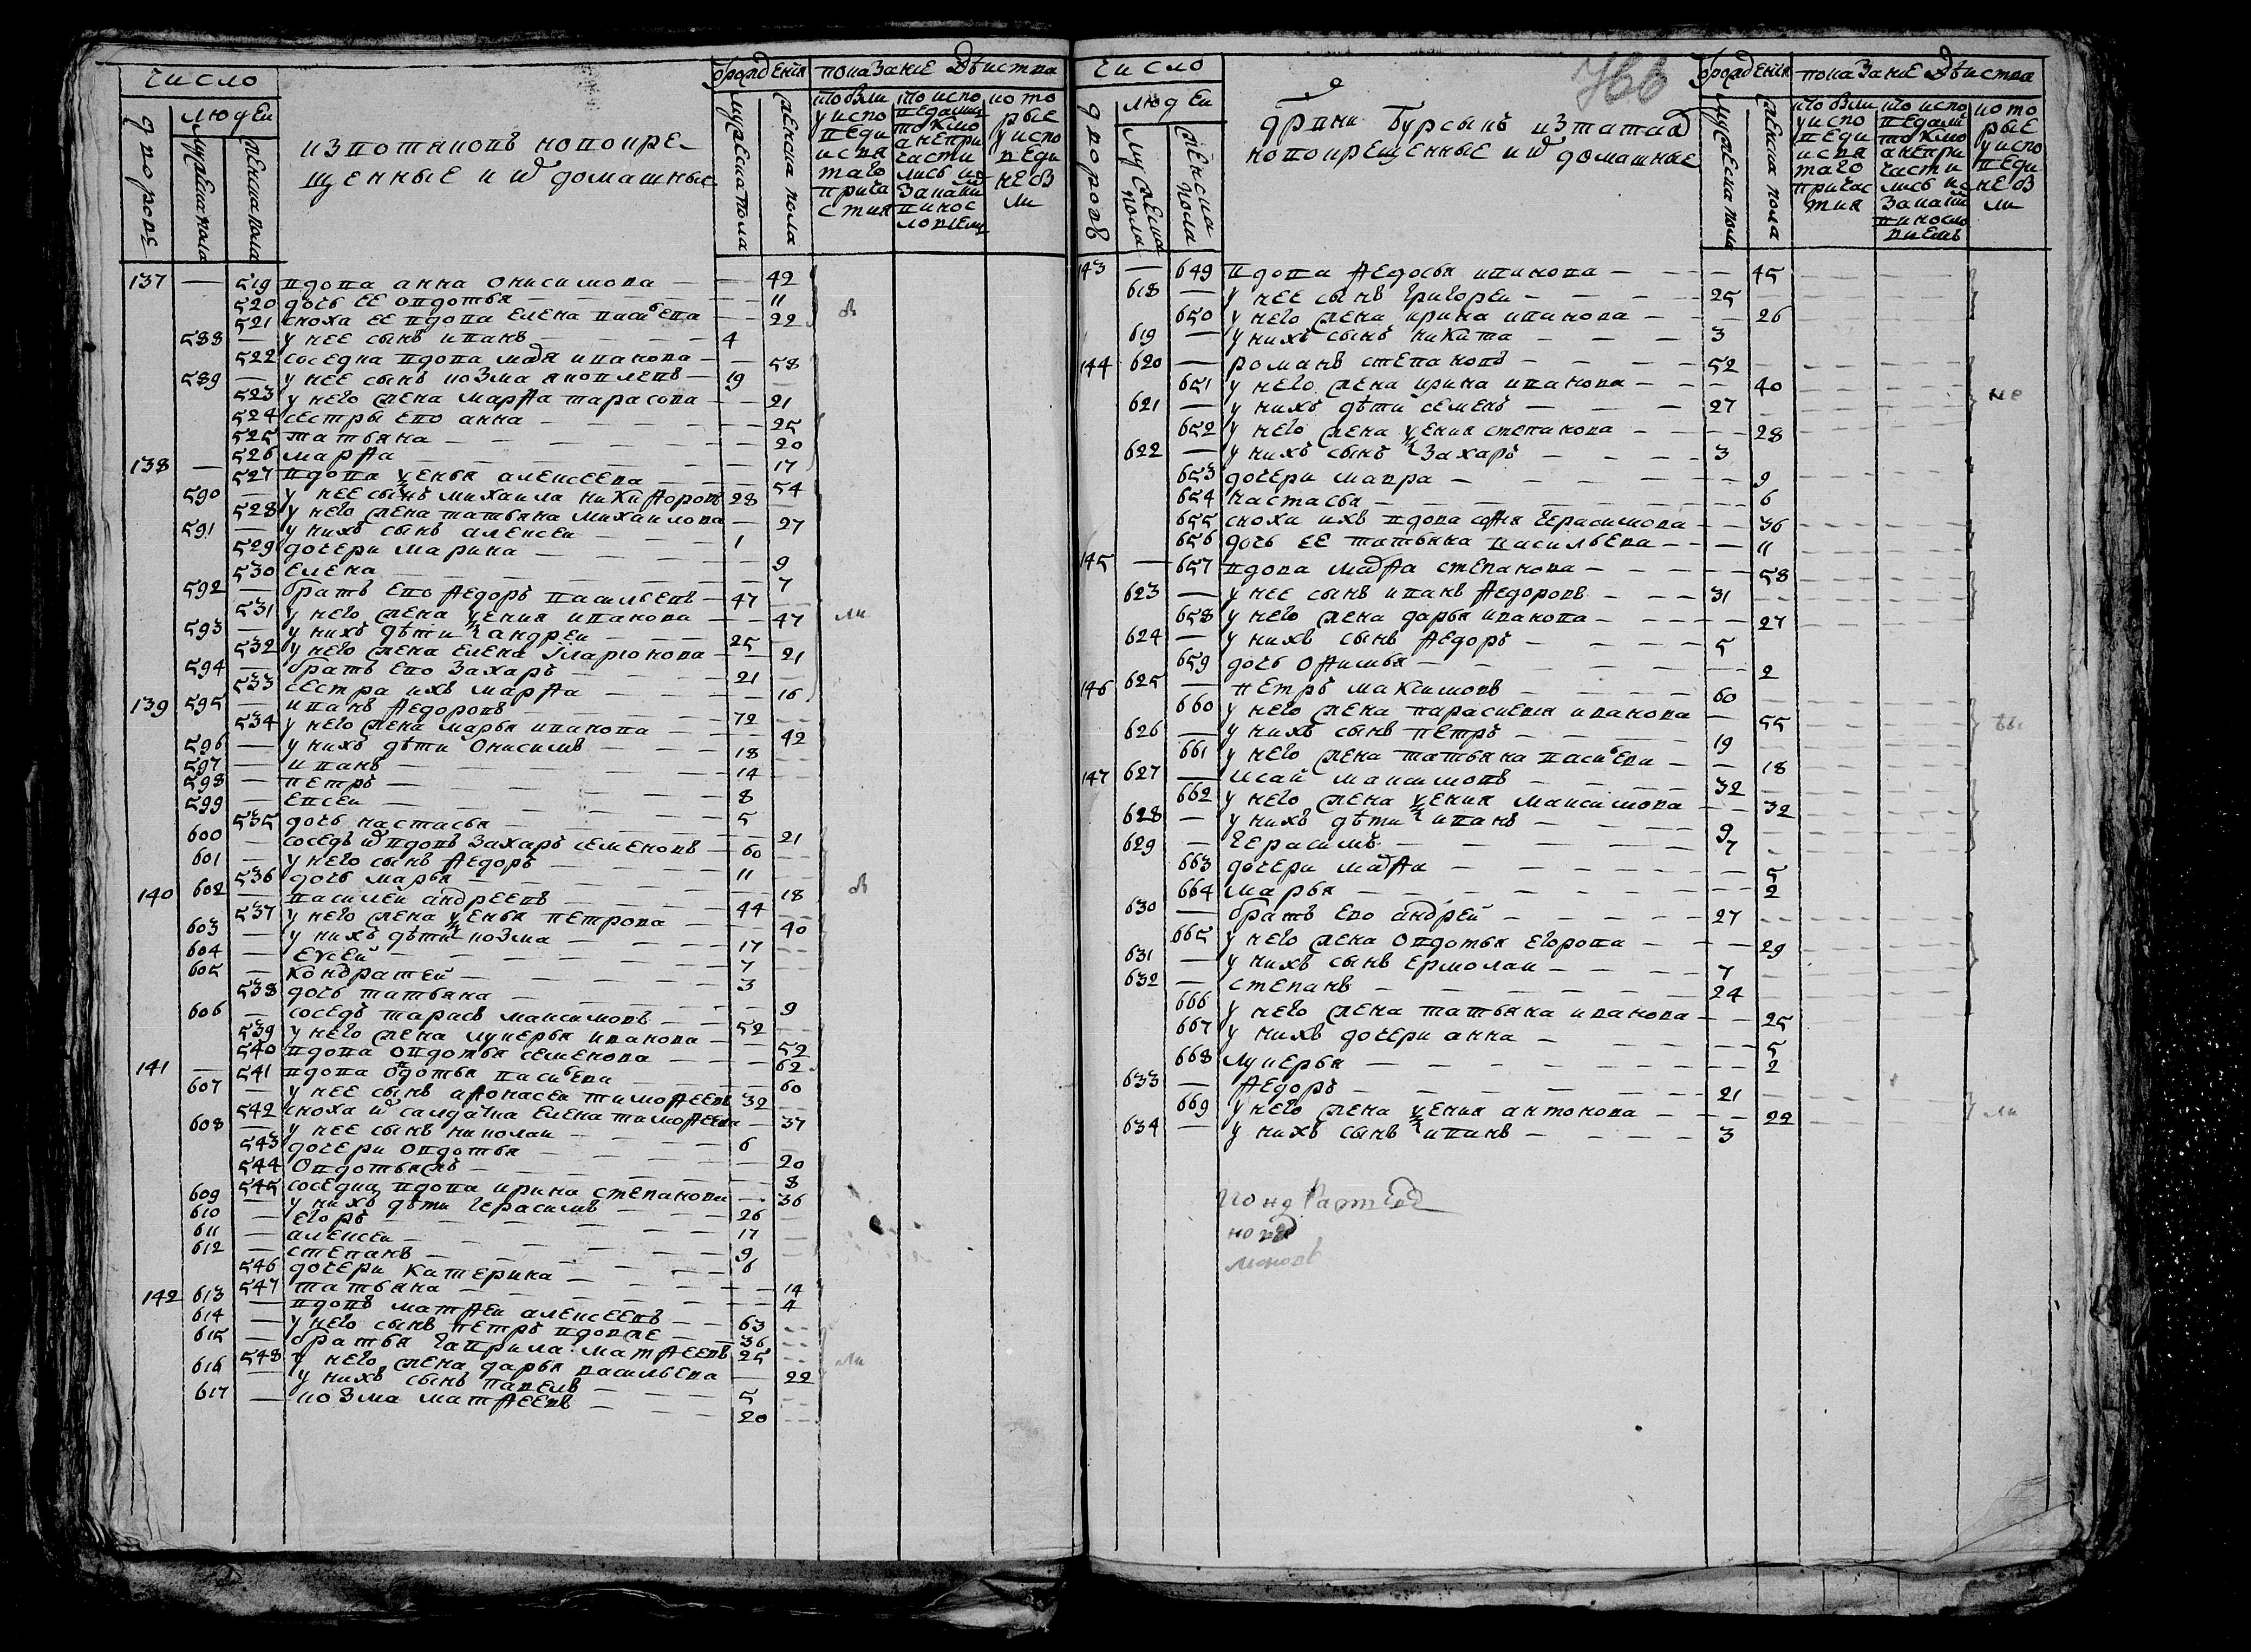 число
людей
дворовъ
мужеска пола
женска пола
из вотяковъ новокре-
щенные и ѿ домашные
ѿ рождения
мужеска пола
женска пола
показание действа
кто были у исповеди и святаго причастия
кто исповедались токмо а не причастились и за каким винословием
которые у исповеди не были
137 — 519 вдова анна онисимова — — 42
520 дочь ее овдотья — — 11
521 сноха ее вдова елена васильева — — 22
588 — у нее сынъ иванъ — 4
522 соседка вдова марья иванова — — 58
589 — у нее сынъ козма яковлевъ — 19
523 у него жена марѳа тарасова — — 21
524 сестры ево анна — — 25
525 татьяна — — 20
526 марѳа — — 17
138 — 527 вдова ѯенья алексеева — — 54
590 — у нее сынъ михаила никиѳоровъ 28
528 у него жена татьяна михаилова — 27
591 — у нихъ сынъ алексеи — 1
529 дочери марина — — 9
530 елена — — 7
592 — братъ ево ѳедоръ васильевъ — 47
531 у него жена ѯения иванова — — 47
593 — у нихъ дѣти андреи — 25
532 у него жена елена іларионова — — 21
594 — братъ ево захаръ — 21
533 сестра ихъ марѳа — — 16
139 595 — иванъ ѳедоровъ — 72
534 у него жена марья иванова — — 42
596 — у нихъ дѣти онисимъ — 18
597 — иванъ — 14
598 — петръ — 8
599 — евсеи — 5
535 дочь настасья — — 21
600 — соседъ ѿ вдовъ захаръ семеновъ — 60
601 — у него сынъ ѳедоръ — 11
536 дочь марья — — 18
140 602 — василеи андреевъ — 44
537 у него жена ѯенья петрова — — 40
603 — у нихъ дѣти козма — 17
604 — евсеи — 7
605 — кондратеи — 3
538 дочь татьяна — — 9
606 — соседъ тарасъ максимовъ — 52
539 у него жена лукерья иванова — — 52
540 вдова овдотья семенова — — 62
141 — 541 вдова овдотья васильева — — 60
607 — у нее сынъ аѳонасеи тимоѳеевъ 32
542 сноха ѿ салдатка елена тимоѳеева — 37
608 — у нее сынъ николаи — 6
543 дочери овдотья — — 20
544 овдотья жъ — — 8
545 соседка вдова ирина степанова — 36
609 — у нихъ дѣти герасимъ — 26
610 — егоръ — 17
611 — алексеи — 9
612 — степанъ — 6
546 дочери катерина — — 14
547 татьяна — — 4
142 613 — вдовъ матѳеи алексеевъ — 63
614 — у него сынъ петръ вдов же — 36
615 — братья гаврила матѳеевъ 25
548 у него жена дарья васильева — 22
616 — у нихъ сынъ павелъ — 5
617 — козма матѳеевъ — 20
число
людеи
дворовъ
мужеска пола
женска пола
дрвни бурсыкъ из татар
новокрещенные и ѿ домашные
ѿ рождения
мужеска пола
женска пола
показание действа
кто были у исповеди и святаго причастия
кто исповедали токмо а не причастились и за каким винословием
которые у исповеди не были
143 — 649 вдова ѳедосья иванова — — 45
618 — у нее сынъ григореи — 25
650 у него жена ирина иванова — — 26
619 — у нихъ сынъ никита — 3
144 620 — романъ степановъ — 52
651 у него жена ирина иванова — — 40
621 — у нихъ дѣти семенъ — 27
652 у него жена ѯения степанова — — 28
622 — у нихъ сынъ захаръ — 3
653 дочери мавра — — 9
654 настасья — — 6
655 сноха ихъ вдова соѳья герасимова — — 36
656 дочь ее татьяна васильева — — 11
145 — 657 вдова марѳа степанова — — 58
623 — у нее сынъ иванъ ѳедоровъ — 31
658 у него жена дарья иванова — — 27
624 — у нихъ сынъ ѳедоръ — 5
659 дочь оѳимья — — 2
146 625 — петръ максимовъ — 60
660 у него жена парасковья иванова — 55
626 — у нихъ сынъ петръ — 19
661 у него жена татьяна васильева — — 18
147 627 — исаи максимовъ — 32
662 у него жена ѯения максимова — 32
628 — у нихъ дѣти иванъ — 9
629 — герасимъ — 7
663 дочери марѳа — — 5
664 марья — — 2
630 — братъ ево андреи — 27
665 у него жена овдотья егорова — — 29
631 — у нихъ сынъ ермолаи — 7
632 — степанъ — 24
666 у него жена татьяна иванова — 25
667 у нихъ дочери анна — — 5
668 лукерья — — 2
633 — ѳедоръ — 21
669 у него жена ѯения антонова — — 22
634 — у нихъ сынъ иванъ — 3